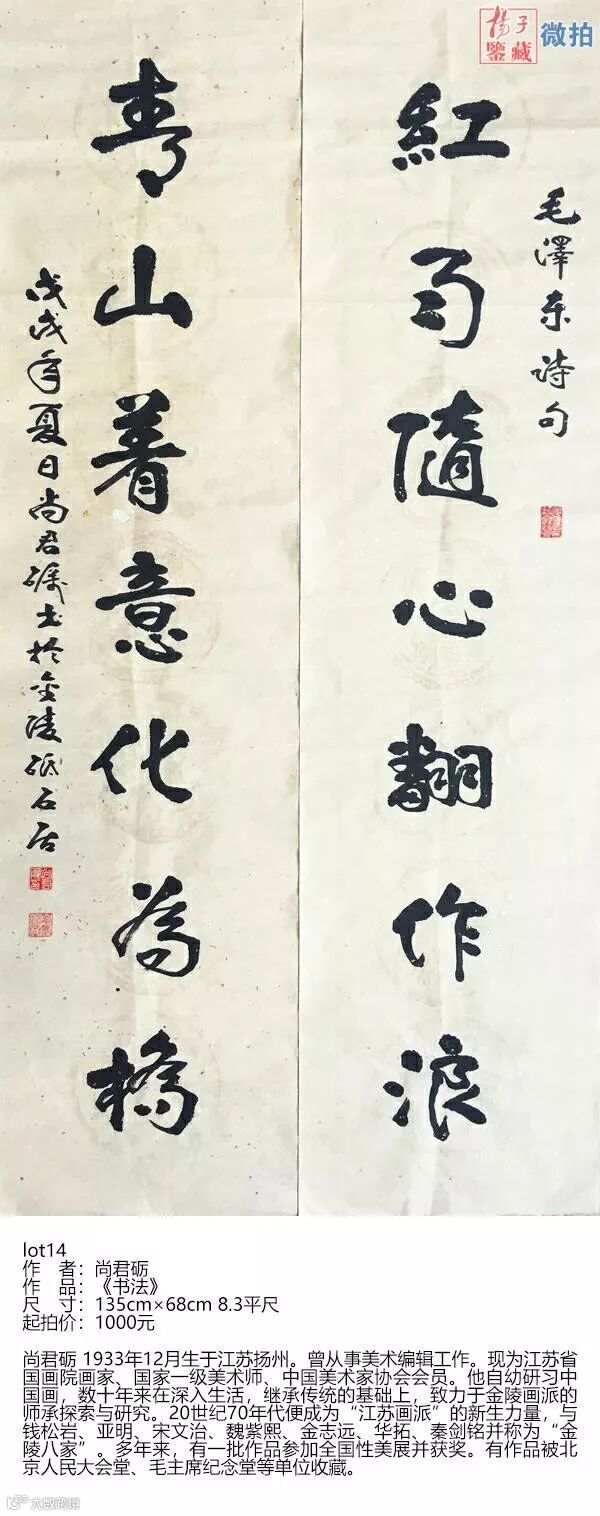 揚子
鑒藏
微拍
毛澤东詩句
紅雨隨心翻作浪
青山着意化為橋
戊戌年夏日尚君礪书於金陵砥石居
lot14
作　者：尚君砺
作　品：《书法》
尺　寸：135cm×68cm 8.3平尺
起拍价：1000元
尚君砺 1933年12月生于江苏扬州。曾从事美术编辑工作。现为江苏省
国画院画家、国家一级美术师、中国美术家协会会员。他自幼研习中
国画，数十年来在深入生活，继承传统的基础上，致力于金陵画派的
师承探索与研究。20世纪70年代便成为“江苏画派”的新生力量，与
钱松岩、亚明、宋文治、魏紫熙、金志远、华拓、秦剑铭并称为“金
陵八家”。多年来，有一批作品参加全国性美展并获奖。有作品被北
京人民大会堂、毛主席纪念堂等单位收藏。